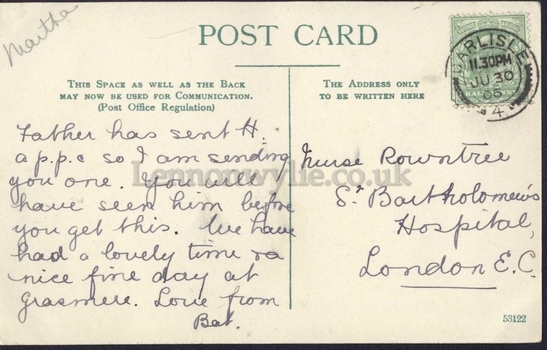 Martha
POST CARD
THIS SPACE AS WELL AS THE BACK
MAY NOW BE USED FOR COMMUNICATION.
(Post Office Regulation)
THE ADDRESS ONLY
TO BE WRITTEN HERE
CARLISLE
11.30PM
JU 30
05
4
Father has sent H.
a p.p.c so I am sending
you one. You will
have seen him before
you get this. We have
had a lovely time &a
nice fine day at
Grasmere. Love from
Bat.
Nurse Rowntree
St Bartholomew's
Hospital,
London E.C.
Lennonwylie.co.uk
53122